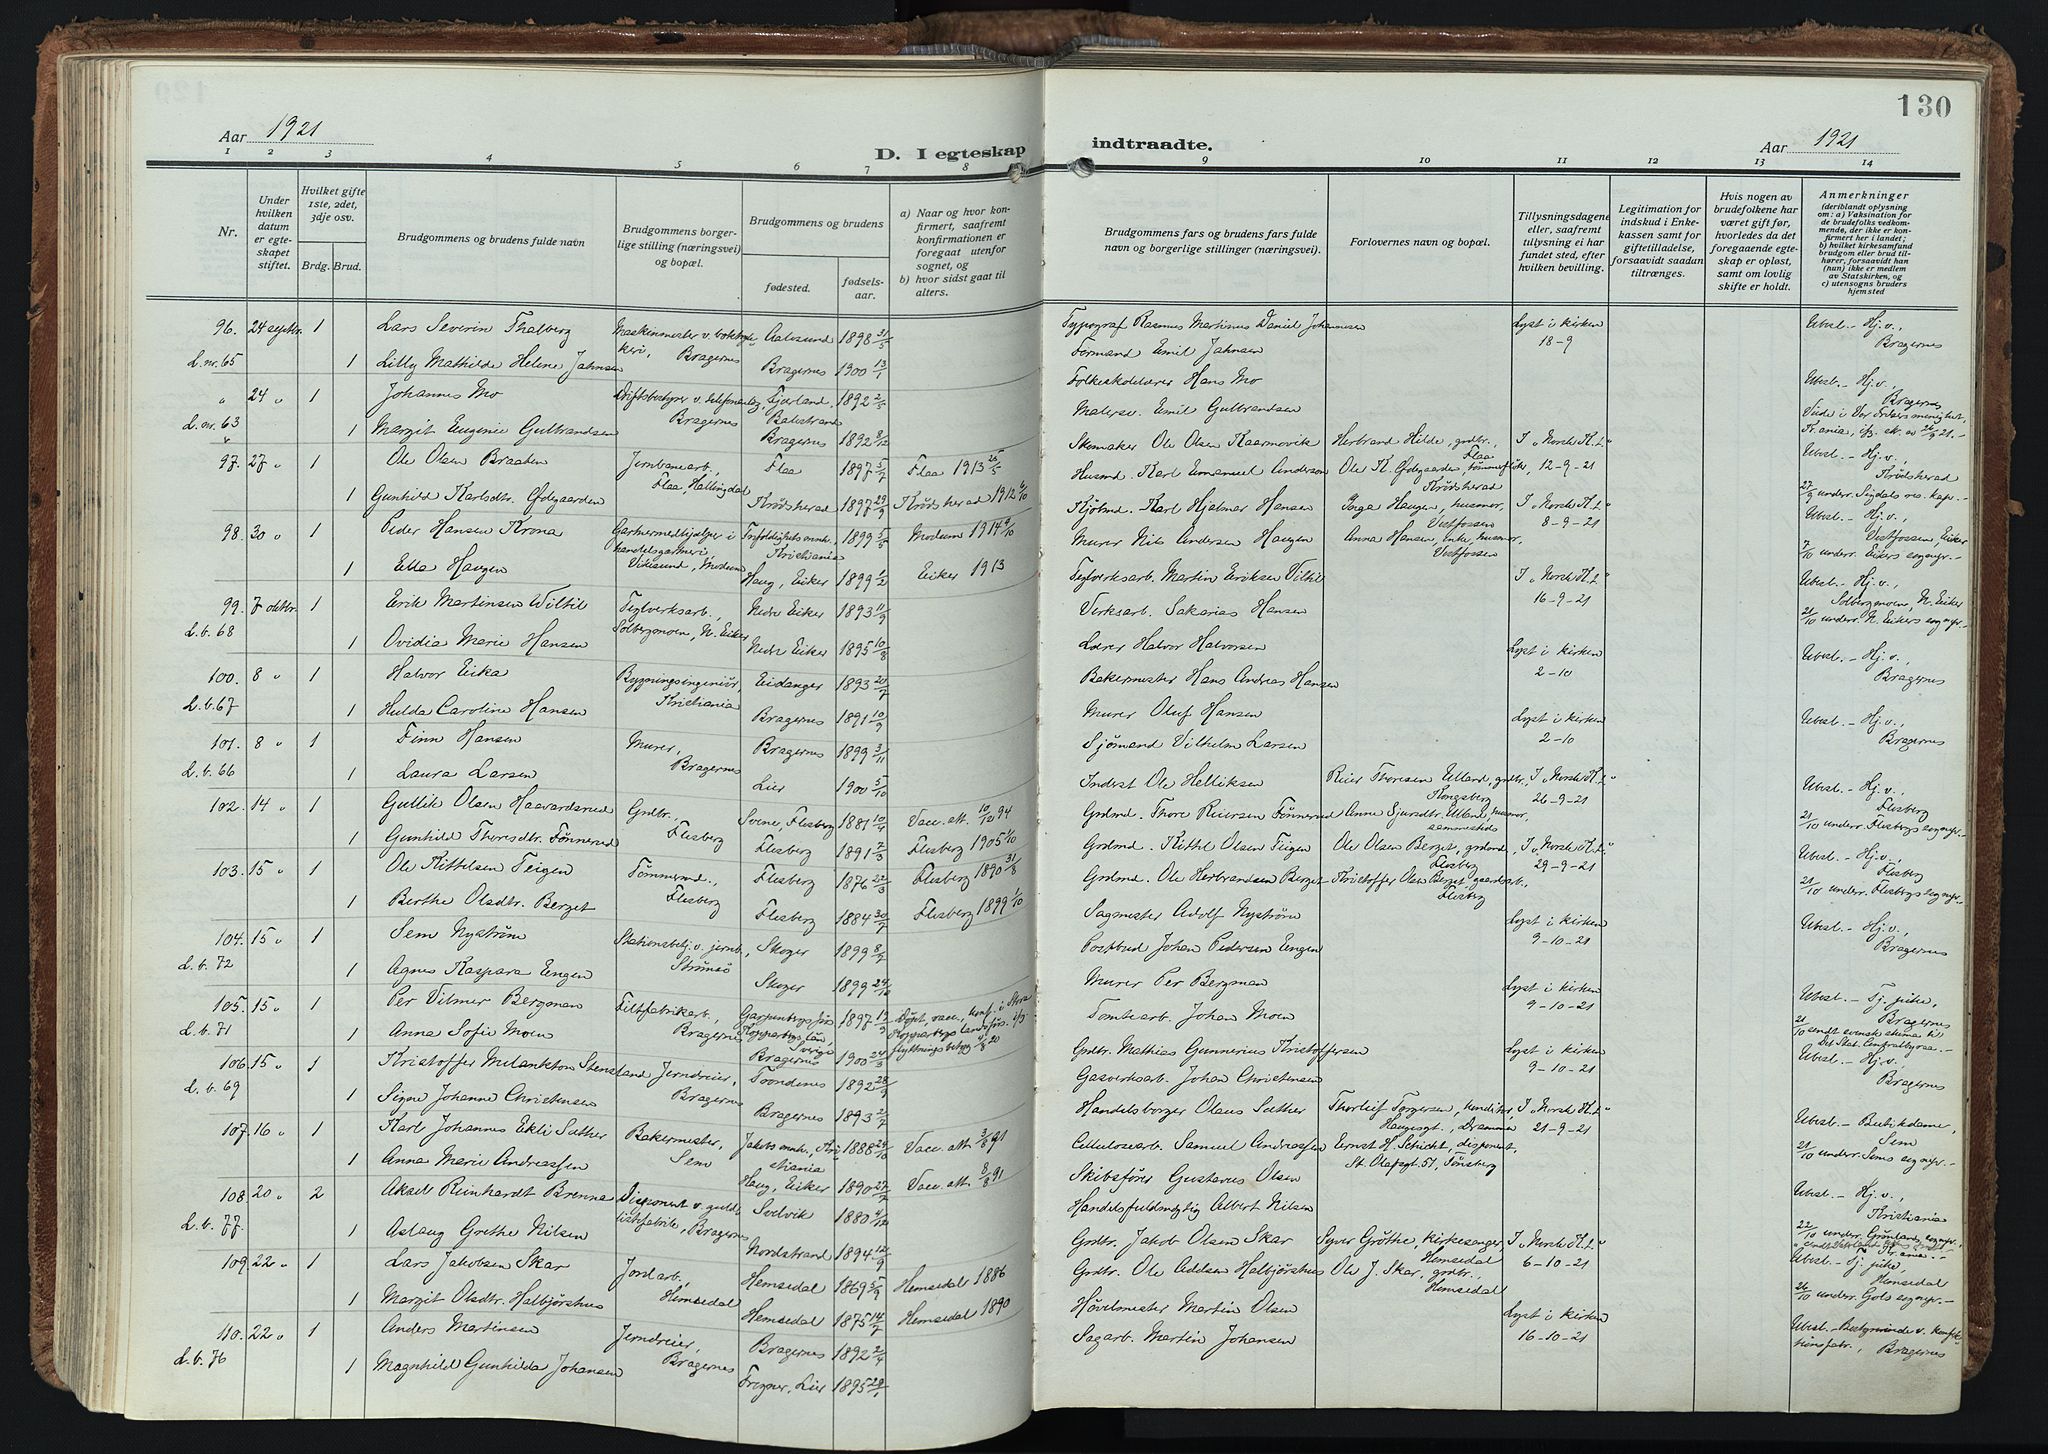 130
Aar 1921
D. I egteskap
indtraadte.
Aar 1921
1 2 3 4 5 6 7 8 9 10 11 12 13 14
Nr.
Under hvilken datum er egteskapet stiftet.
Hvilket gifte 1ste, 2det, 3dje osv.
Brdg. Brud.
Brudgommens og brudens fulde navn
Brudgommens borgerlige stilling (næringsvei) og bopæl.
Brudgommens og brudens
fødested.
fødselsaar.
a) Naar og hvor konfirmert, saafremt konfirmationen er foregaat utenfor sognet, og
b) hvor sidst gaat til alters.
Brudgommens fars og brudens fars fulde navn og borgerlige stillinger (næringsvei).
Forlovernes navn og bopæl.
Tillysningsdagene eller, saafremt tillysning ei har fundet sted, efter hvilken bevilling.
Legitimation for indskud i Enkekassen samt for giftetilladelse, forsaavidt saadan tiltrænges.
Hvis nogen av brudefolkene har været gift før, hvorledes da det foregaaende egteskap er opløst, samt om lovlig skifte er holdt.
Anmerkninger (deriblandt oplysning om: a) Vaksination for de brudefolks vedkommende, der ikke er konfirmert her i landet; b) hvilket kirkesamfund brudgom eller brud tilhører, forsaavidt han (hun) ikke er medlem av Statskirken, og c) utensogns bruders hjemsted
96. 24 septbr. 1 Lars Severin Thalberg Maskinmester v. boktrykkeri, Bragernes Aalesund 1898 31/5 Typograf Rasmus Martinus Daniel Johannesen Lyst i kirken 18-9 Ubesl. – Hj.v., Bragernes
L. nr. 65 1 Lilly Mathilde Helene Jahnsen Bragernes 1900 13/1 Formand Emil Jahnsen
" 24 " 1 Johannes Mo Driftsbestyrer v. telefonanlæg, Bragernes Fjærland, Balestrand 1892 2/5 Folkeskolelærer Hans Mo Ubesl. – Hj.v., Bragernes
L. nr. 63 1 Margit Eugenie Gulbrandsen Bragernes 1892 8/12 Malersv. Emil Gulbrandsen
97. 27 " 1 Ole Olsen Braaten Jernbanearb., Flaa, Hallingdal Flaa 1897 5/7 Flaa 1913 25/5 Skomaker Ole Olsen Kaarmovik Herbrand Hilde, grdbr., Flaa I "Norsk K.t." 12-9-21 Ubesl. – Hj.v., Krødsherad
1 Gunhild Karlsdtr. Ødegaarden Krødsherad 1897 29/9 Krødsherad 1912 6/10 Husmd. Karl Emanuel Anderson Ole K. Ødegaarden, tømmerfløder, Krødsherad 27/9 underr. Sigdals res. kap. –
98. 30 " 1 Peder Hansen Krona Gartnermedhjælper i handelsgartneri, Vikesund, Modum Trefoldighets menh. Kristiania 1899 5/5 Modum 1914 4/10 Kjøbmd. Karl Hjalmar Hansen Inga Haugen, husmor, Vestfossen I "Norsk K.t." 8-9-21 Ubesl. – Hj.v., Vestfossen, Eiker
1 Ella Haugen Haug, Eiker 1899 1/2 Eiker 1913 Murer Nils Andersen Haugen Anna Hansen, enke, husmor, Vestfossen 7/10 underr. Eikers sognepr. –
99. 7 oktbr. 1 Erik Martinsen Wiltil Teglverksarb., Solbergmoen, N. Eiker Nedre Eiker 1893 11/9 Teglverksarb. Martin Eriksen Viltil I "Norsk K.t." 16-9-21 Ubesl. – Hj.v., Solbergmoen, N. Eiker
L. b. 68 1 Ovidia Marie Hansen Nedre Eiker 1895 10/8 Verksarb. Sakarias Hansen 21/10 underr. N. Eikers sognepr. –
100. 8 " 1 Halvor Eika Bygningsingeniør, Kristiania Eidanger 1893 20/7 Lærer Halvor Halvorsen Lyst i kirken 2-10 Ubesl. – Hj.v., Bragernes
L. b. 67 1 Hulda Caroline Hansen Bragernes 1891 10/9 Bakermester Hans Andreas Hansen
101. 8 " 1 Finn Hansen Murer, Bragernes Bragernes 1899 3/11 Murer Oluf Hansen Lyst i kirken 2-10 Ubesl. – Hj.v., Bragernes
L. b. 66 1 Laura Larsen Lier 1900 5/10 Sjømand Vilhelm Larsen
102. 14 " 1 Gullik Olsen Haavardsrud Grdbr., Flesberg Svene, Flesberg 1881 10/4 Vacc. att. 10/12 94 Inderst Ole Helliksen Reier Thoresen Ulland, grdbr., Kongsberg I "Norsk K.t." 26-9-21 Ubesl. – Hj.v., Flesberg
1 Gunhild Thoresdtr. Tønnerud Flesberg 1891 7/3 Flesberg 1905 1/10 Grdmd. Thore Reiersen Tønnerud Anne Gjursdtr. Ulland, husmor, sammesteds 21/10 underr. Flesbergs sognepr. –
103. 15 " 1 Ole Kittelsen Teigen Tømmermd., Flesberg Flesberg 1876 22/3 Flesberg 1890 31/8 Grdmd. Kittil Olsen Teigen Ole Olsen Berget, grdmd., Flesberg I "Norsk K.t." 29-9-21 Ubesl. – Hj.v., Flesberg
1 Berthe Olsdtr. Berget Flesberg 1884 30/7 Flesberg 1899 1/10 Grdmd. Ole Herbrandsen Berget Kristoffer Olsen Berget, gaardsarb., Flesberg 21/10 underr. Flesbergs sognepr. –
104. 15 " 1 Sem Nystrøm Stationsbetj. v. jernb., Strømsø Skoger 1899 8/7 Sagmester Adolf Nystrøm Lyst i kirken 9-10-21 Ubesl. – Hj.v., Bragernes
L. b. 72 1 Agnes Kaspara Engen Skoger 1899 24/10 Postbud Johan Pedersen Engen
105. 15 " 1 Per Vilmer Bergman Filtfabrikarb., Bragernes Garpenbergs förs. Kopparbergs län, Sverige 1897 13/3 Døpt, vacc., konf. i Stora Kopparbergs landsförs. iflg. flyttningsbetyg 4/8 20 Murer Per Bergman Lyst i kirken 9-10-21 Ubesl. – Tj. pike, Bragernes
L. b. 71 1 Anna Sofie Moen Bragernes 1900 24/3 Tomtearb. Johan Moen 21/10 sendt svensk skema til Det Stat. Centralbyraa. –
106. 15 " 1 Kristoffer Melankton Stensland Jerndreier, Bragernes Trondenes 1892 28/9 Grdbr. Mathias Gunnerius Kristoffersen Lyst i kirken 9-10-21 Ubesl. – Hj.v., Bragernes
L. b. 69 1 Signe Johanne Christensen Bragernes 1893 2/7 Gasverksarb. Johan Christensen
107. 16 " 1 Karl Johannes Ekli Sæther Bakermester, Sem Jakobs menh., Kristiania 1888 29/10 Vacc. att. 3/8 91 Handelsborger Olaus Sæther Thorleif Torgersen, konditor, Haugesgt., Drammen I "Norsk K.t." 21-9-21 Ubesl. – Butikdame, Sem
1 Anna Marie Andreassen Haug, Eiker 1890 27/7 Vacc. att. 8/8 91 Cellulosearb. Samuel Andreassen Ernst H. Schicht, disponent, St. Olafsgt. 51, Tønsberg 21/10 underr. Sems sognepr. –
108. 20 " 2 Aksel Reinhardt Brenna Disponent v. guldlistefabrik, Bragernes Svelvik 1880 4/12 Skibsfører Gustavus Olsen Ubesl. – Hj.v., Kristiania
L. b. 77. 1 Aslaug Grethe Nilsen Nordstrand 1894 12/9 Handelsfuldmegtig Albert Nilsen 22/10 underr. Grønlands sognepr.,
109. 22 " 1 Lars Jakobsen Skar Jordarb., Hemsedal Hemsedal 1869 5/9 Hemsedal 1886 Grdbr. Jakob Olsen Skar Syver Grøthe, kirkesanger, Hemsedal I "Norsk K.t." 6-10-21 Ubesl. – Tj. pike, Hemsedal
1 Margit Olsdtr. Halbjørshus Hemsedal 1875 14/7 Hemsedal 1890 Grdbr. Ole Oddsen Halbjørshus Ole J. Skar, grdbr., Hemsedal 26/10 underr. Gols sognepr. –
110. 22 " 1 Anders Martinsen Jerndreier, Bragernes Bragernes 1892 2/4 Høvelmester Martin Olsen Lyst i kirken 16-10-21 Ubesl. – Bestyrerinde v. konfektionsfabr., Bragernes
L. b. 76 1 Magnhild Gunhilda Johansen Frogner, Lier 1895 28/1 Sagarb. Martin Johansen